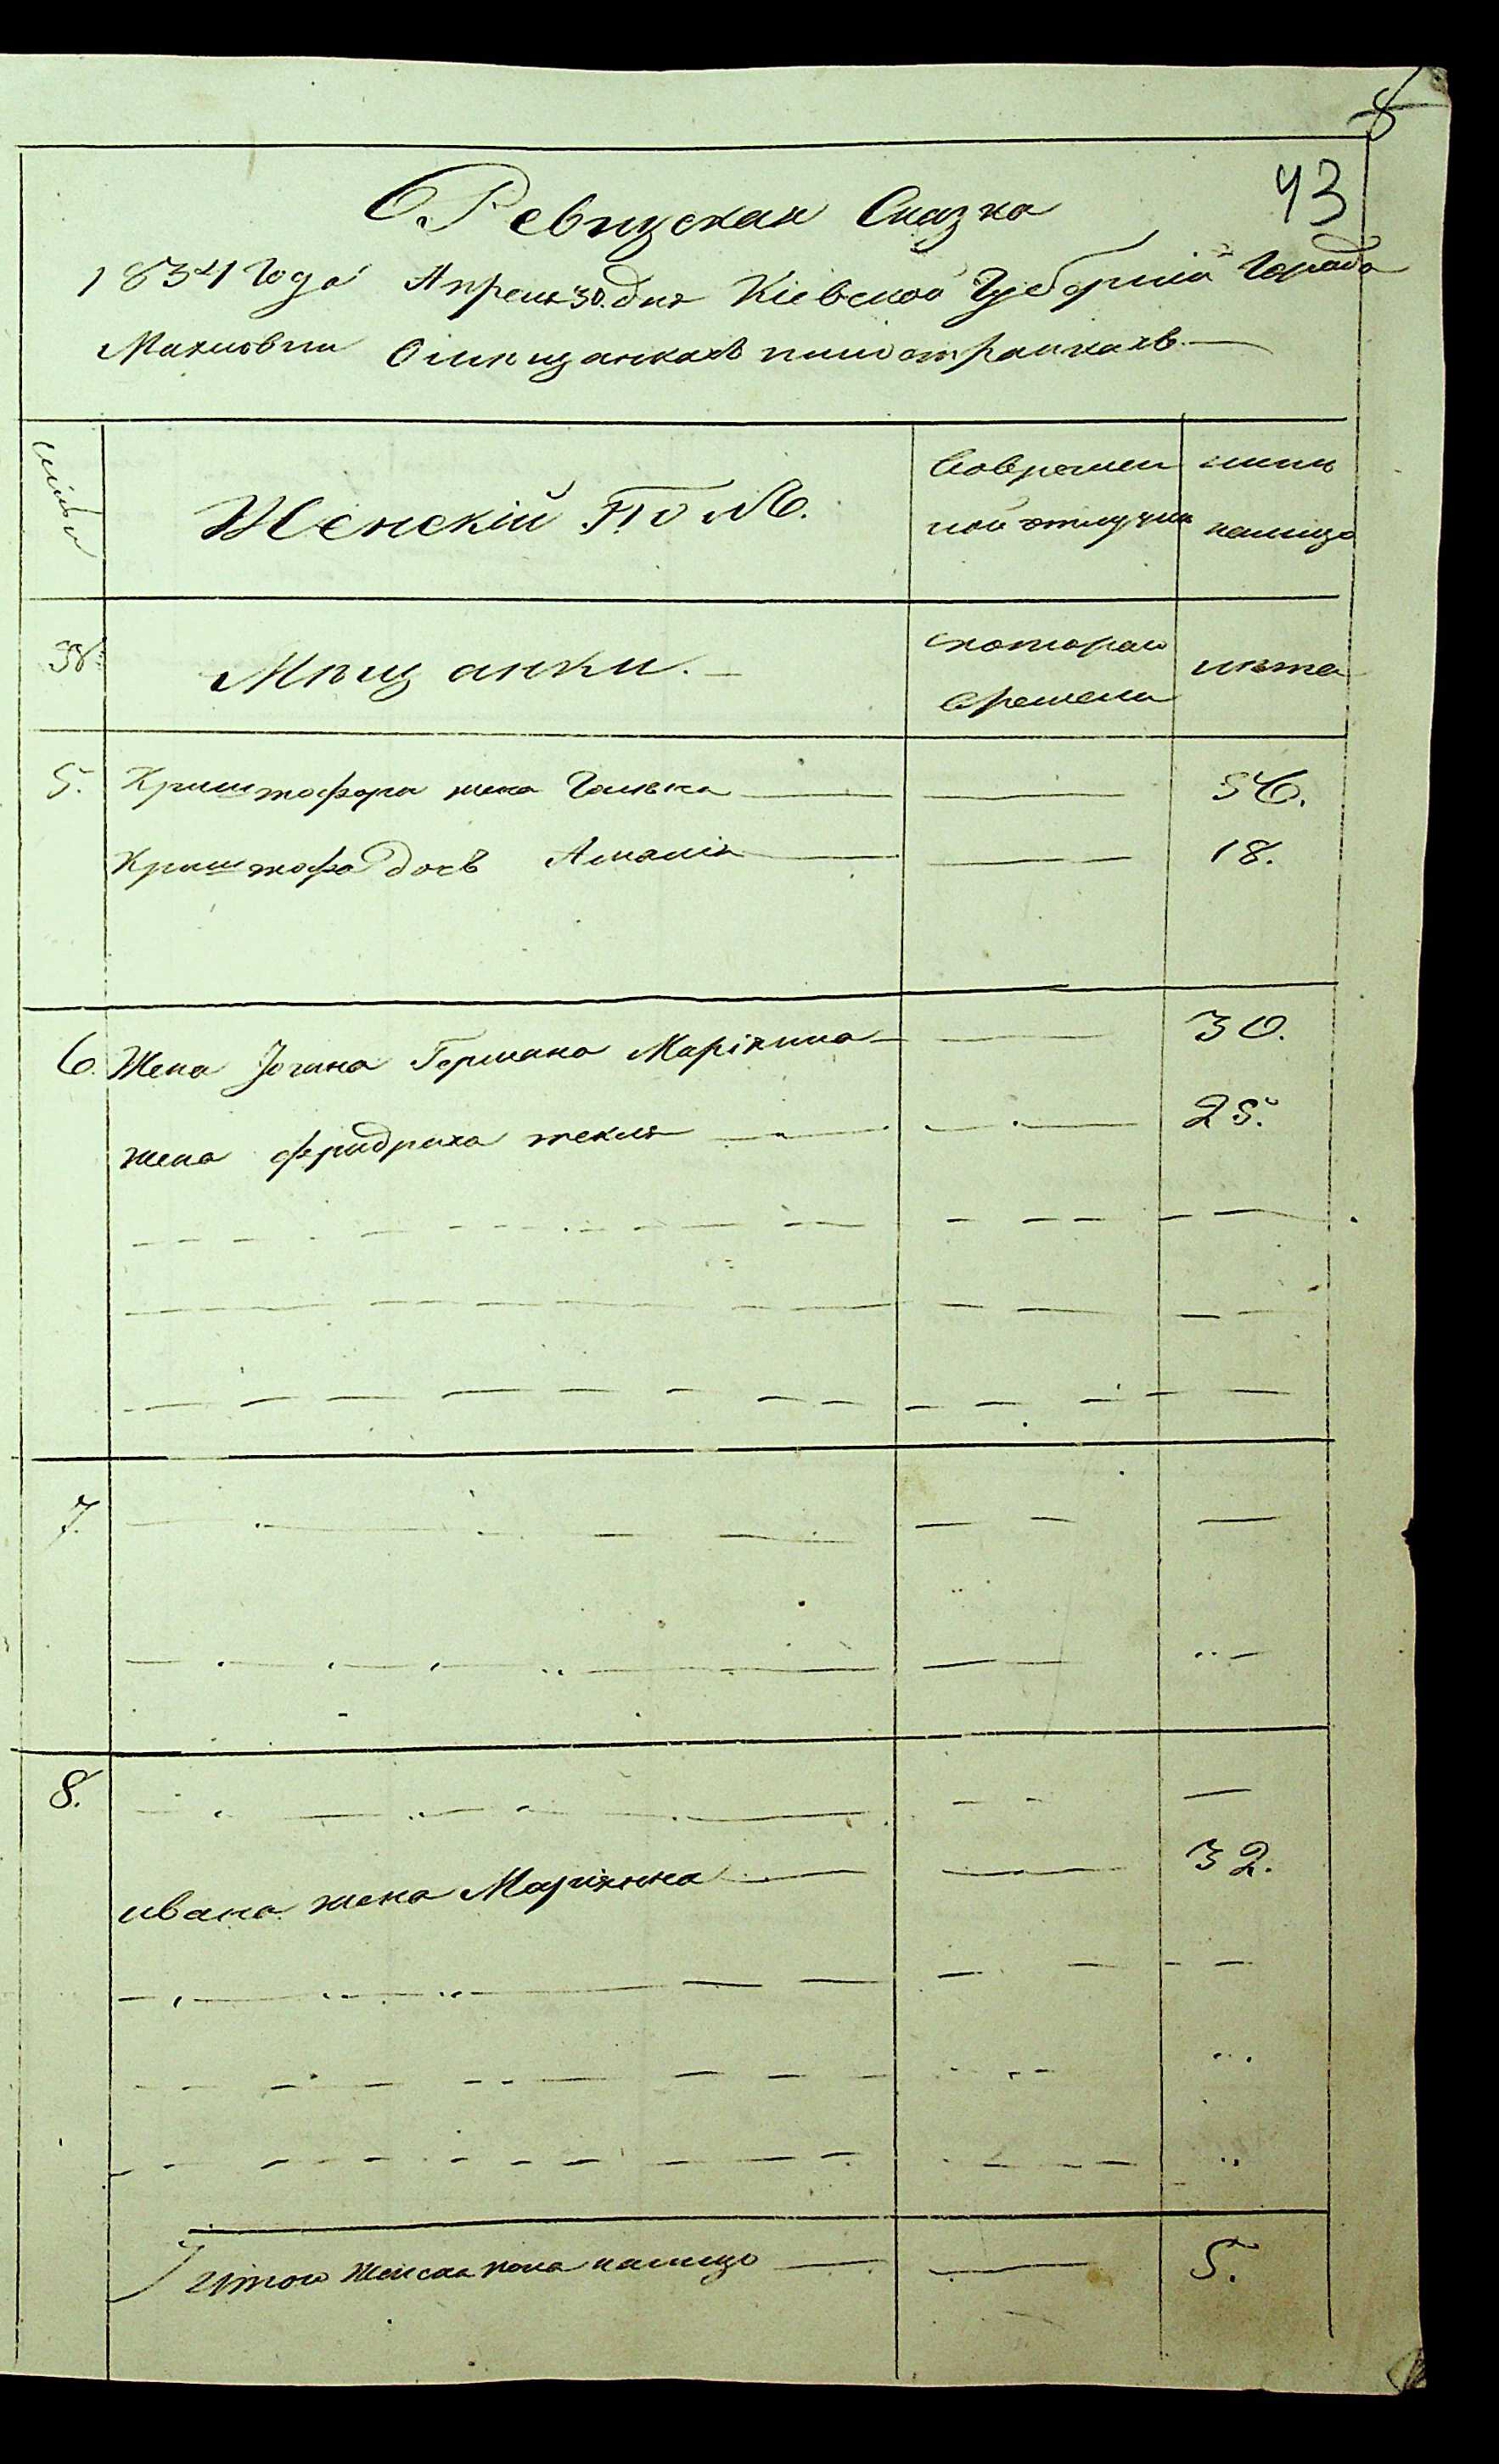 8
43
Ревизская Сказка
1834 Года Апреля 30. дня Кіевской Губерніи Города
Махновки О мещанкахъ иностранкахъ
семьи
Женскій Полъ.
Вовремен
ной отлучки
ныне
налицо
№
Мещанки.
скотораго
времени
лета
5. Криштофора жена
56.
Криштофа дочь Амалія
18.
6. Жена Іогана Германа Маріянна
30.
жена Фридриха текля
25.
7.
8.
ивана жена Маріянна
32.
Итого женска пола налицо
5.